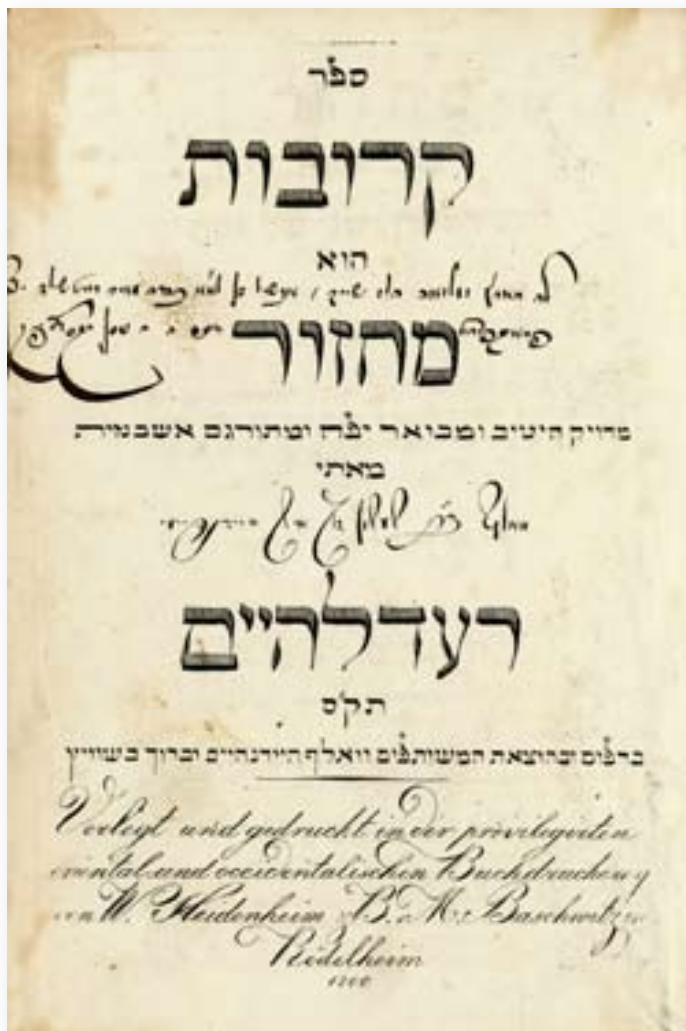 ספר
קרובות
הוא
מחזור
מדויק היטיב ומבואר יפה ומתורגם אשכנזית
מאתי
רעדלהיים
תק״ס
בדפוס ובהוצאת המשותפים וואלף היידנהיים וברוך בשוויץ
Verlegt und gedruckt in der privilegirten
oriental. und occidentalischen Buchdruckerey
von W. Heidenheim & B. M. Baschwitz in
Rödelheim
1800